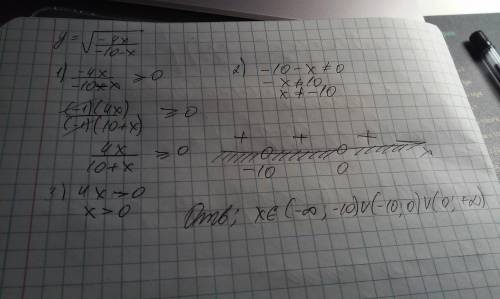 y = √(-4x / -10-x)
1) -4x / -10-x ≥ 0
(-1)(4x) / (-1)(10+x) ≥ 0
4x / 10+x ≥ 0
3) 4x > 0
x > 0
2) -10 - x ≠ 0
-x ≠ 10
x ≠ -10
+ + +
-10 0 x
Отв; x∈(-∞; -10)∪(-10; 0)∪(0; +∞)